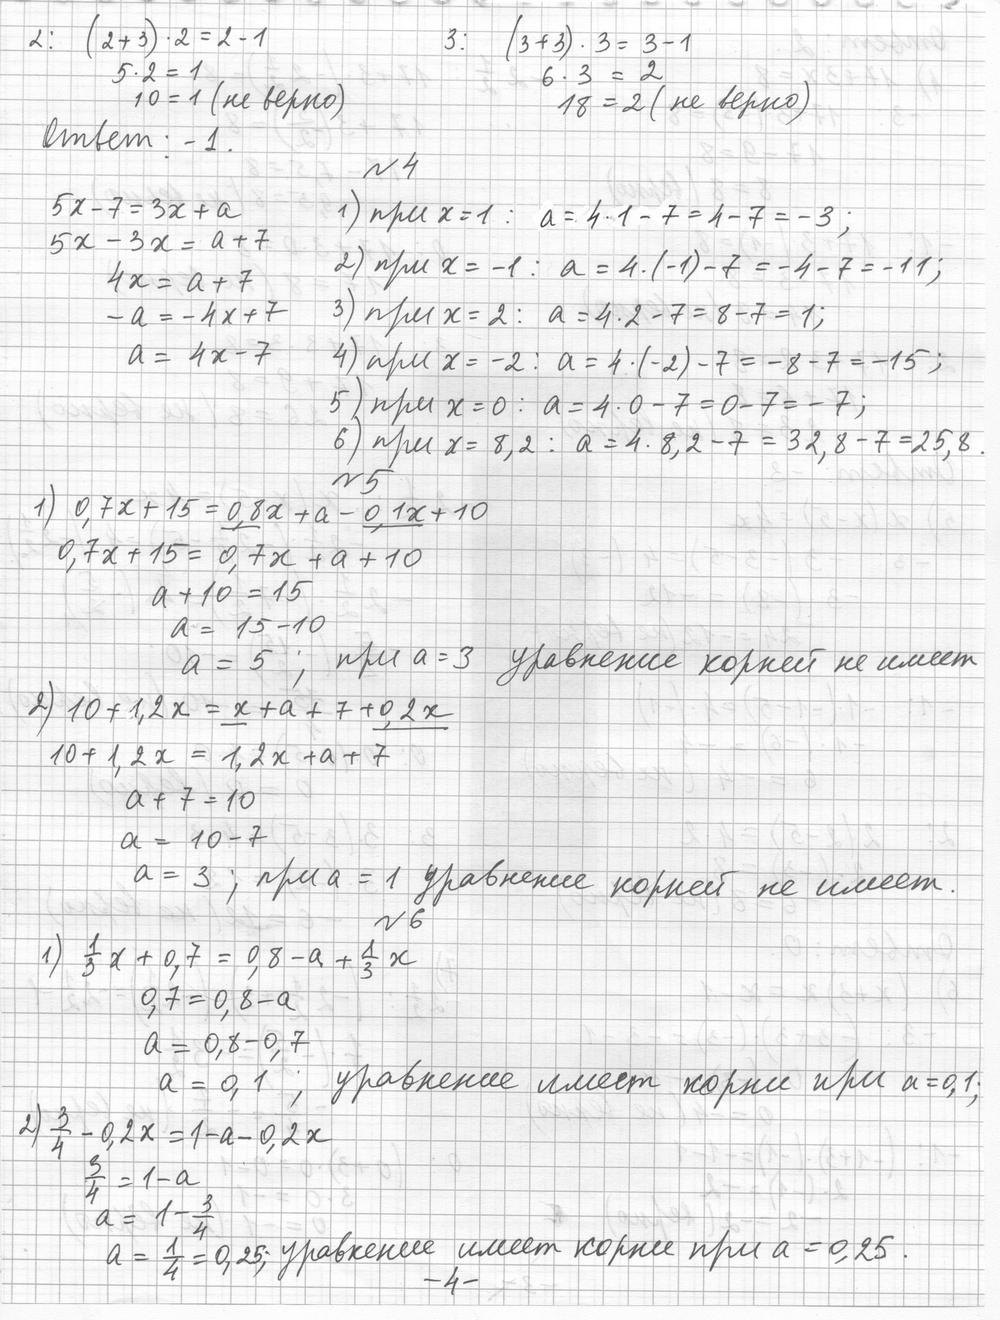 2: (2+3)·2=2-1
5·2=1
10=1 (не верно)
3: (3+3)·3=3-1
6·3=2
18=2 (не верно)
Ответ: -1.
№4
5x-7=3x+a
5x-3x=a+7
4x=a+7
-a=-4x+7
a=4x-7
1) при x=1: a=4·1-7=4-7=-3;
2) при x=-1: a=4·(-1)-7=-4-7=-11;
3) при x=2: a=4·2-7=8-7=1;
4) при x=-2: a=4·(-2)-7=-8-7=-15;
5) при x=0: a=4·0-7=0-7=-7;
6) при x=8,2: a=4·8,2-7=32,8-7=25,8.
№5
1) 0,7x+15=0,8x+a-0,1x+10
0,7x+15=0,7x+a+10
a+10=15
a=15-10
a=5; при a=3 уравнение корней не имеет
2) 10+1,2x=x+a+7+0,2x
10+1,2x=1,2x+a+7
a+7=10
a=10-7
a=3; при a=1 уравнение корней не имеет.
№6
1) 1/3x+0,7=0,8-a+1/3x
0,7=0,8-a
a=0,8-0,7
a=0,1; уравнение имеет корни при a=0,1;
2) 3/4-0,2x=1-a-0,2x
3/4=1-a
a=1-3/4
a=1/4=0,25; уравнение имеет корни при a=0,25.
-4-